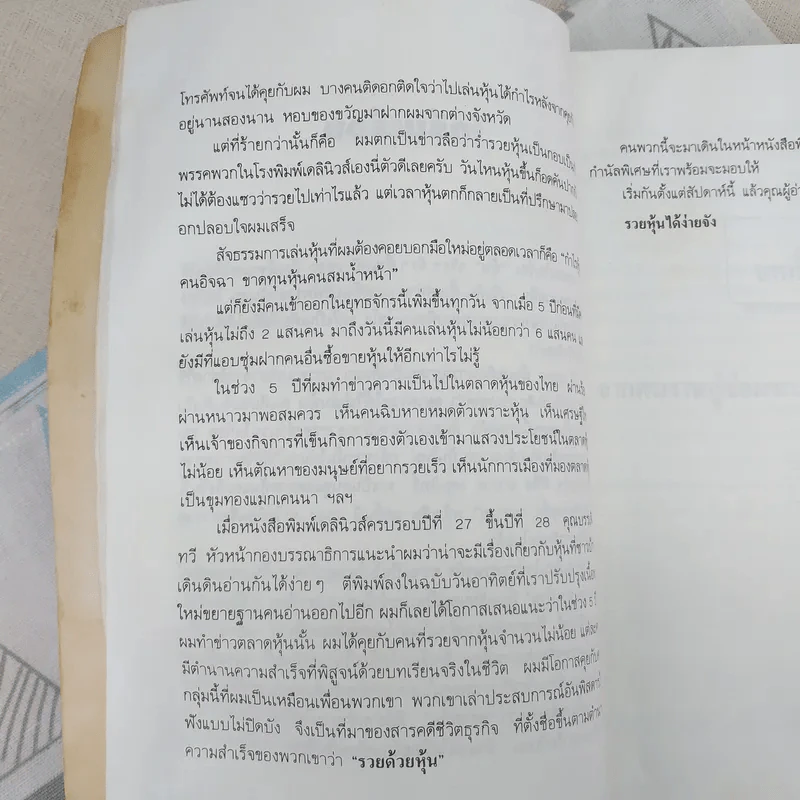 โทรศัพท์จนได้คุยกับผม บางคนติดอกติดใจว่าไปเล่นหุ้นได้กำไรหลังจาก
อยู่นานสองนาน หอบของขวัญมาฝากผมจากต่างจังหวัด
แต่ที่ร้ายกว่านั้นก็คือ ผมตกเป็นข่าวลือว่าร่ำรวยหุ้นเป็นกอบเป็น
พรรคพวกในโรงพิมพ์เดลินิวส์เองนี่ตัวดีเลยครับ วันไหนหุ้นขึ้นก็อดคันปาก
ไม่ได้ต้องแซวว่ารวยไปเท่าไรแล้ว แต่เวลาหุ้นตกก็กลายเป็นที่ปรึกษามา
อกปลอบใจผมเสร็จ
สัจธรรมการเล่นหุ้นที่ผมต้องคอยบอกมือใหม่อยู่ตลอดเวลาก็คือ “กำไร
คนอิจฉา ขาดทุนหุ้นคนสมน้ำหน้า”
แต่ก็ยังมีคนเข้าออกในยุทธจักรนี้เพิ่มขึ้นทุกวัน จากเมื่อ 5 ปีก่อนที่มี
เล่นหุ้นไม่ถึง 2 แสนคน มาถึงวันนี้มีคนเล่นหุ้นไม่น้อยกว่า 6 แสนคน
ยังมีที่แอบซุ่มฝากคนอื่นซื้อขายหุ้นให้อีกเท่าไรไม่รู้
ในช่วง 5 ปีที่ผมทำข่าวความเป็นไปในตลาดหุ้นของไทย ผ่าน
ผ่านหนาวมาพอสมควร เห็นคนฉิบหายหมดตัวเพราะหุ้น เห็นเศรษฐี
เห็นเจ้าของกิจการที่เข็นกิจการของตัวเองเข้ามาแสวงประโยชน์ในตลาด
ไม่น้อย เห็นตัณหาของมนุษย์ที่อยากรวยเร็ว เห็นนักการเมืองที่มองตลาด
เป็นขุมทองแมกเคนนา ฯลฯ
เมื่อหนังสือพิมพ์เดลินิวส์ครบรอบปีที่ 27 ขึ้นปีที่ 28 คุณ
ทวี หัวหน้ากองบรรณาธิการแนะนำผมว่าน่าจะมีเรื่องเกี่ยวกับหุ้นที่
เดินดินอ่านกันได้ง่าย ๆ ตีพิมพ์ลงในฉบับวันอาทิตย์ที่เราปรับปรุง
ใหม่ขยายฐานคนอ่านออกไปอีก ผมก็เลยได้โอกาสเสนอแนะว่าในช่วง 5 ปี
ผมทำข่าวตลาดหุ้นนั้น ผมได้คุยกับคนที่รวยจากหุ้นจำนวนไม่น้อย
มีตำนานความสำเร็จที่พิสูจน์ด้วยบทเรียนจริงในชีวิต ผมมีโอกาสคุยกับ
กลุ่มนี้ที่ผมเป็นเหมือนเพื่อนพวกเขา พวกเขาเล่าประสบการณ์อัน
ฟังแบบไม่ปิดบัง จึงเป็นที่มาของสารคดีชีวิตธุรกิจ ที่ตั้งชื่อขึ้นตาม
ความสำเร็จของพวกเขาว่า “รวยด้วยหุ้น”
คนพวกนี้จะมาเดินในหน้าหนังสือ
กำนัลพิเศษที่เราพร้อมจะมอบให้
เริ่มกันตั้งแต่สัปดาห์นี้ แล้วคุณผู้
รวยหุ้นได้ง่ายจัง